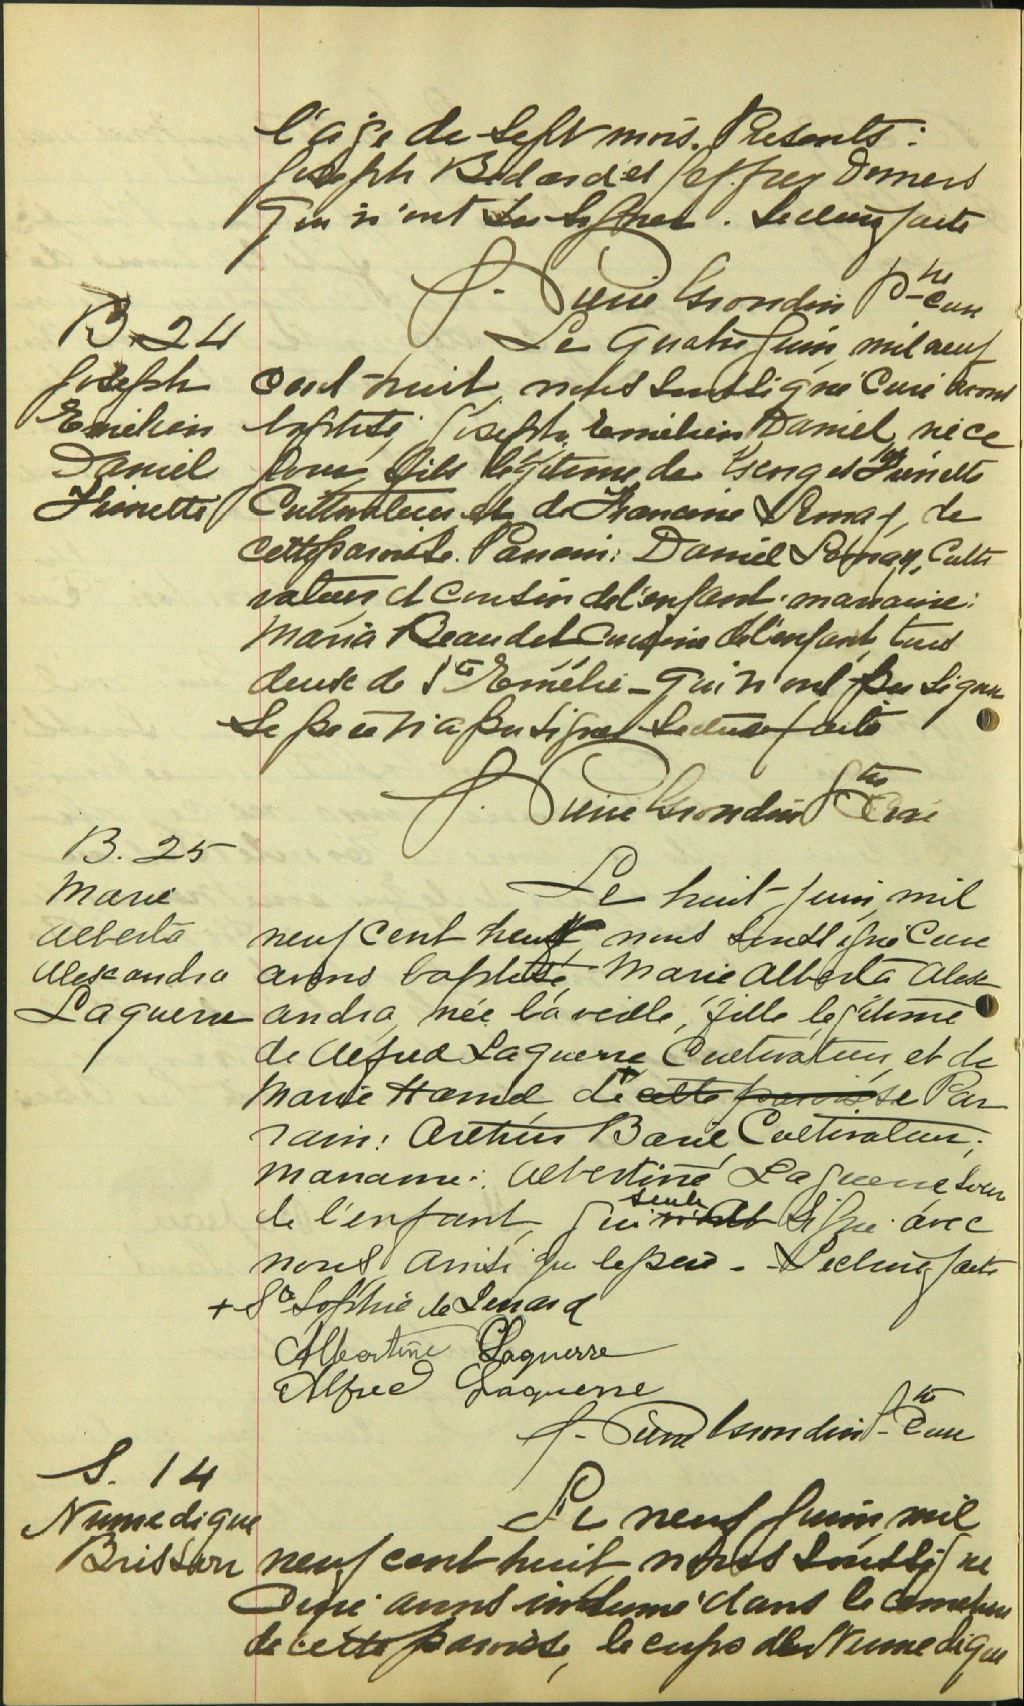 l'age de Sept mois. Présents:
Joseph Bedard et Jeffrey Demers
qui n'ont su signer. Lecture faite
J. Pierre Grondin Ptre Curé
B. 24
Joseph
Emélien
Daniel
Pinette
Le quatre Juin, mil neuf
cent huit, nous Soussigné Curé avons
baptisé, Joseph, Emélien, Daniel, né ce
jour, fils légitime de George Pinette
Cultivateur et de Francine Lemay, de
cette paroisse. Parrain: Daniel Lemay, Culti
vateur et Cousin de l'enfant, marraine:
Maria Beaudet Cousine de l'enfant, tous
deux de Ste Emélie - qui n'ont pu signer
Le père n'a pu signer Lecture faite
J. Pierre Grondin Ptre Curé
B. 25
Marie
Alberta
Alexandra
Laguerre
Le huit Juin, mil
neuf cent huit, nous soussigné Curé
avons baptisé, Marie Alberta Alex
andra, née la veille, fille légitime
de Alfred Laguerre, Cultivateur, et de
Marie Hamel de + cette paroisse Par
rain: Arthur Baril Cultivateur;
Marraine: Albertine Laguerre, soeur
de l'enfant, qui seule signe avec
nous, ainsi que le père - Lecture faite
+ Ste Sophie de Levrard
Albertine Laguerre
Alfred Laguerre
J. Pierre Grondin Ptre Curé
S. 14
Numedique
Brisson
Le neuf Juin, mil
neuf cent huit, nous Soussigné
Curé avons inhumé dans le cimetière
de cette paroisse, le corps de Numedique